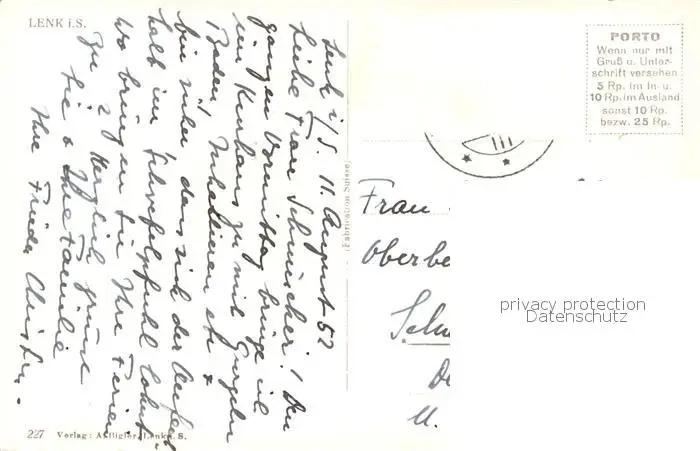 LENK i.S.
Lenk i/S. 11. August 52
Liebe Frau Schmücker! Den
ganzen Vormittag bringe ich
im Kurhaus zu mit Gurgeln
Baden, Inhalieren etc &
bin sicher dass sich der Aufent
halb im Schwefelpfuhl lohnt.
Wo bringen Sie Ihre Ferien
zu? Herzlich grüsst
Sie & Ihre Familie
Ihre Frieda
227 Verlag: A. Bigler, Lenk i. S.
Fabrication Suisse
PORTO
Wenn nur mit
Gruß u. Unter-
schrift versehen
5 Rp. im In- u.
10 Rp. im Ausland
sonst 10 Rp.
bezw. 25 Rp.
III
Frau
Oberbe
privacy protection
Datenschutz